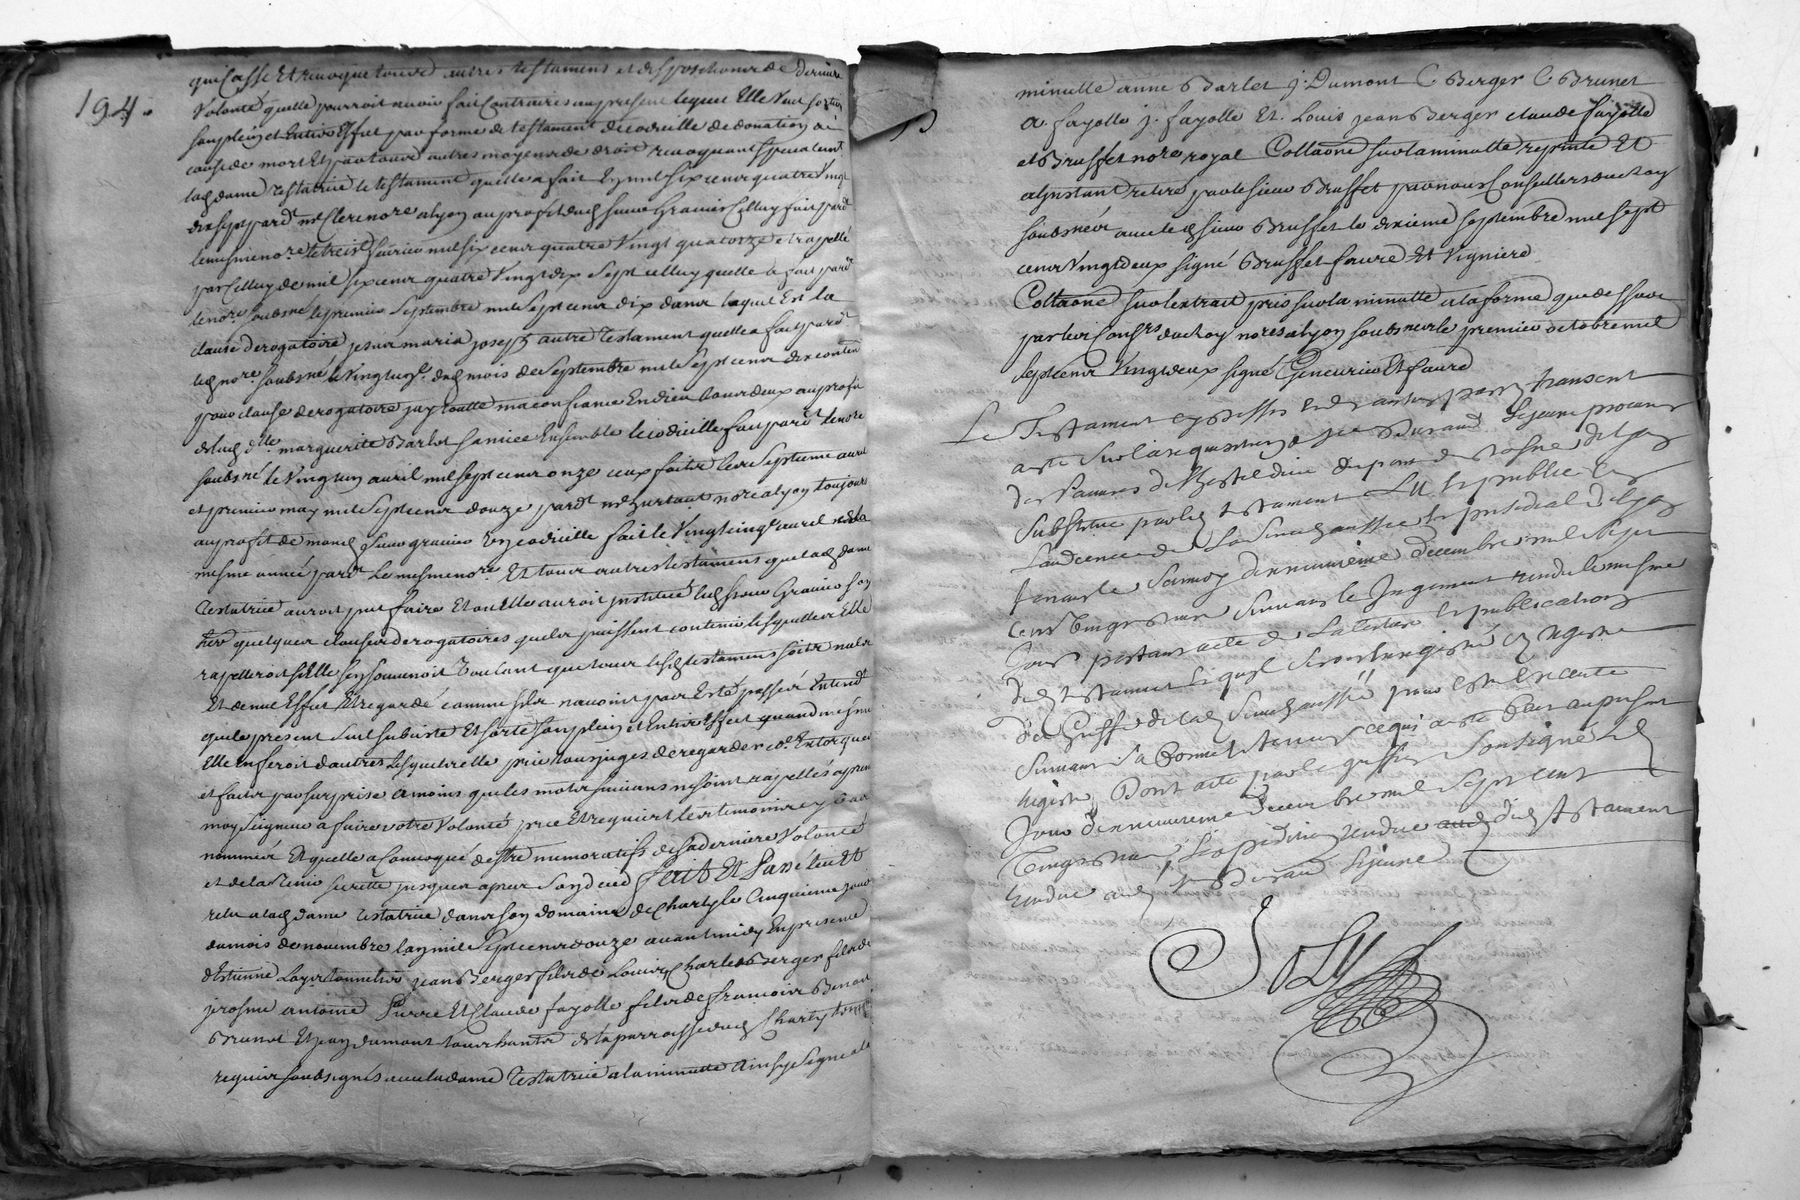 194.
qui Casse Et revoque toutes autres testaments et dispositions de derniere
Volonté quelle pourroit avoir fait Contraires au present lequel Elle Veut sortir
son plein et Entier Effet par forme de testament de codicille de donation à
cause de mort Et par toutes autres moyens de droit revoquant specialement
lad dame testatrice le testament quelle a fait En mil six cens quatre Vingt
dix sept pard.t me Clerc nore a Lyon au profit dud sieur Gravier Celluy fait pard.t
le mesme no.re le treize fevrier mil six cens quatre Vingt quatorze et rapellé
par Celluy de mil six cens quatre Vingt dix sept celluy quelle a fait pard.t
le no.re soubsné le premier septembre mil sept cens dix dans laquel Est la
clause derogatoire jesus maria joseph autre testament quelle a fait pard.t
led no.re soubsné le Vingt dud mois de septembre mil sept cens dix contenant
pour clause derogatoire jay toutte ma confiance En dieu tous deux au profit
de lad d.lle marguerite Barlet sa niece Ensemble le codicille fait pard.t le no.re
soubsné le Vingt un avril mil sept cens onze ceux faits les septieme avril
et premier may mil sept cens douze pard.t me Durtaut nore a Lyon toujours
au profit de mond sieur gravier Un codicille fait le Vingt cinq avril de la
mesme année pard.t le mesme no.re Et tous autres testamens que lad dame
testatrice auroit put faire Et ou Elle auroit institué led sieur Gravier son
her quelques clauses derogatoires quels puissent contenir lesquelles Elle
rapelleroit si Elle sen souvenoit Voulant que tous lesd testamens soits nuls
Et de nul Effet Et regardé comme sils navoint pas Esté passés Entend.t
que le present seul subsiste Et sorte son plein et Entier Effect quand mesme
Elle en feroit dautres lesquels elle prie tous juges de regarder co.e Extorqués
et faits par surprise a moins que les mots suivans ne soint rapellés aprenés
moy Seigneur a faire votre Volonté prie Et requiert les temoins cy bas
nommés Et quelle a Convoqué destre memoratifs de sa derniere Volonté
et de la tenir secrette jusques apres son deced Fait Et Passé leu Et
relu a lad dame testatrice dans son domaine de Charly le Cinquieme jour
du mois de novembre lan mil sept cens douze avant midy En presence
dEstienne Loyer tonnelier jean Berger fils de Louis Charles Berger fils de
jerosme antoine Pierre Et Claude fayolle fils de francois Benoit
Brunet Et jean dumont tous habit.s de la parroisse dud Charly temoins
requis soubsignés avec la dame testatrice a la minutte Ainsy signé a la
minutte anne Barlet j. Dumont C Berger C Brunet
A. fayolle j. fayolle Et Louis jean Berger claude fayolle
et Brusset no.re royal Collaoné sur la minutte reprinte Et
a linstant retiré par le sieur Brusset par nous Conseillers du Roy
soubsnés avec led sieur Brusset le dixieme septembre mil sept
cens Vingt deux signé Brusset faure Et Vigniere
Collaoné sur lextrait pris sur la minutte a la forme que dessus
par les Cons.rs du Roy no.res a Lyon soubsnés le premier octobre mil
sept cens Vingt deux signé Geneurier Et faure
Le Testament cy dessus et des autres parts transcrit
a esté sur la requisition de s.r Durand le jeune procureur
des Pauvres de l'hostel dieu du pont du Rosne de Lyon
substitué par led testament Lu et publié en
l'audience de la Senechaussée et presidial de Lyon
tenant le samedy dixneuvieme decembre mil sept
cens Vingt deux suivant le Jugement rendu le mesme
Jour portant acte de la lecture et publication
dud testament Lequel sera enregistré ez registres
du Greffe de lad Senechaussée pour estre Executé
suivant sa forme et teneur ce qui a esté fait au present
registre Dont acte par le greffier soussigné led
Jour dixneuvieme Decembre mil sept cent
Vingt deux Lexpedition rendue dud testament
rendue aud s.r Durand le jeune
Joly